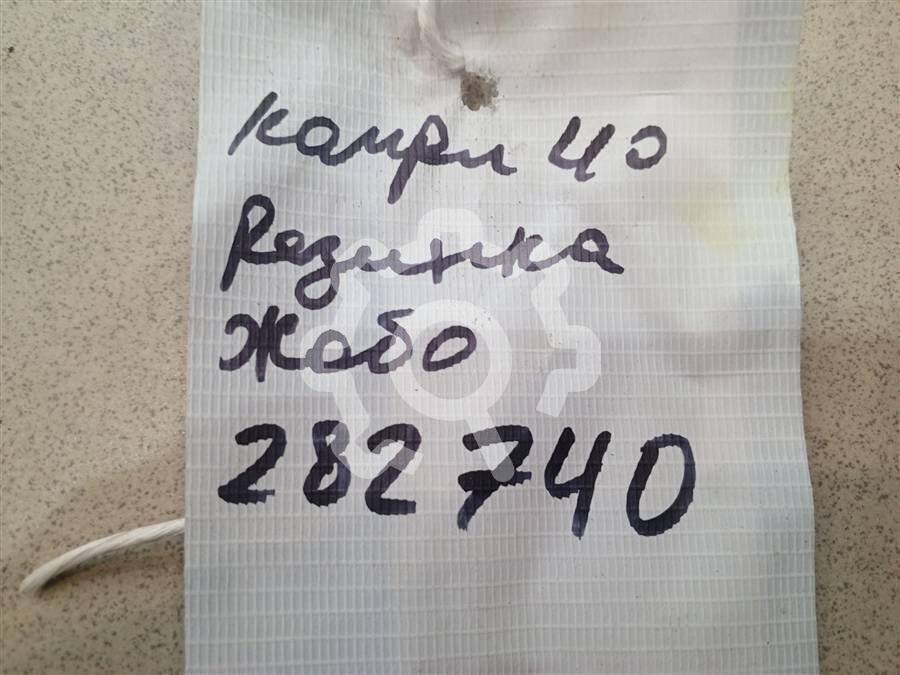 Камри 40
Резинка
Жабо
282740